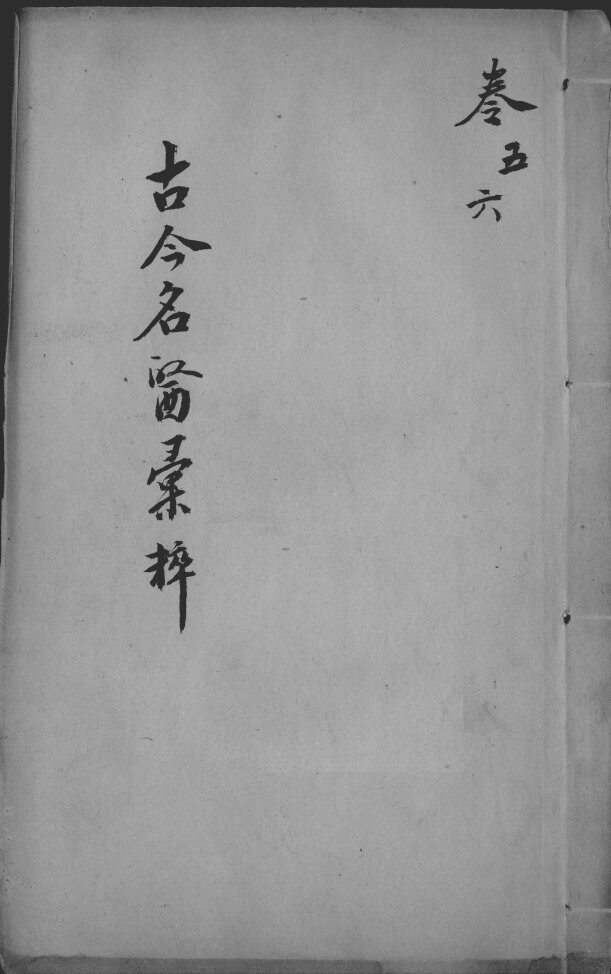 卷五
六
古今名醫彙粹